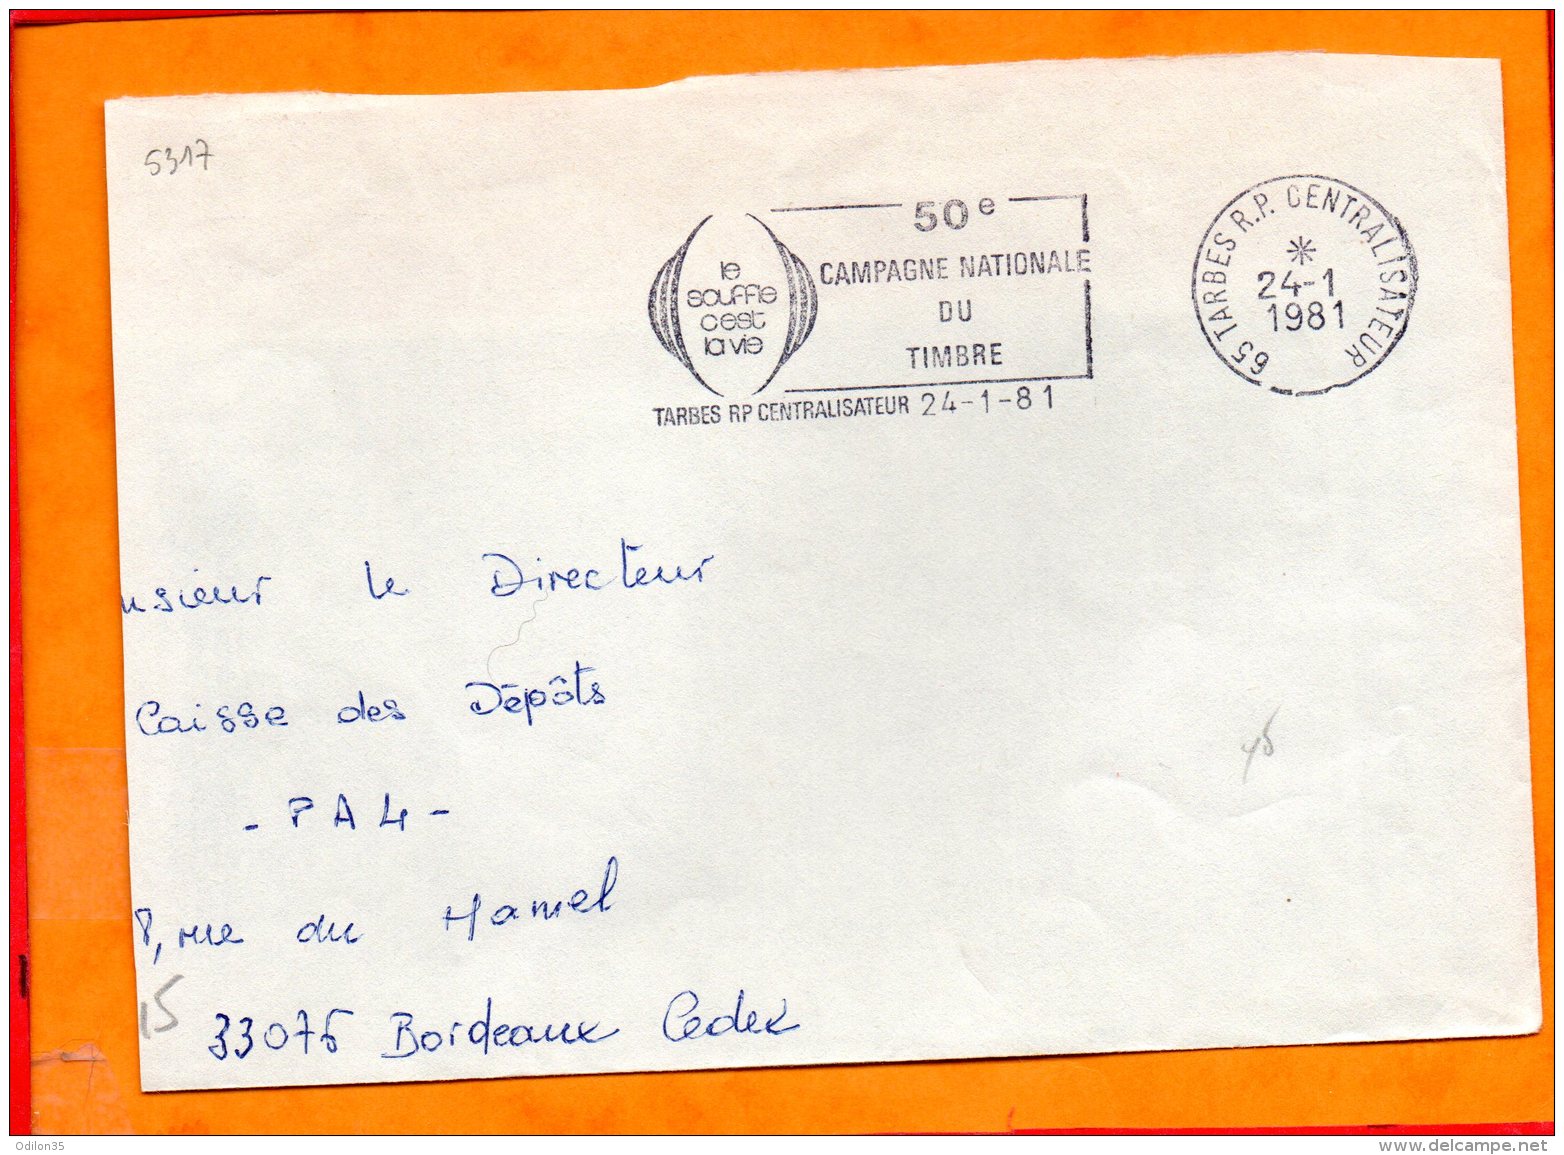 5317
50e
CAMPAGNE NATIONALE
DU
TIMBRE
le
souffle
c'est
la vie
TARBES RP CENTRALISATEUR 24-1-81
65 TARBES R.P. CENTRALISATEUR
24-1
1981
nsieur le Directeur
Caisse des Dépôts
- PA4 -
8, rue du Hamel
15
33075 Bordeaux Cedex
Odilon35
www.delcampe.net